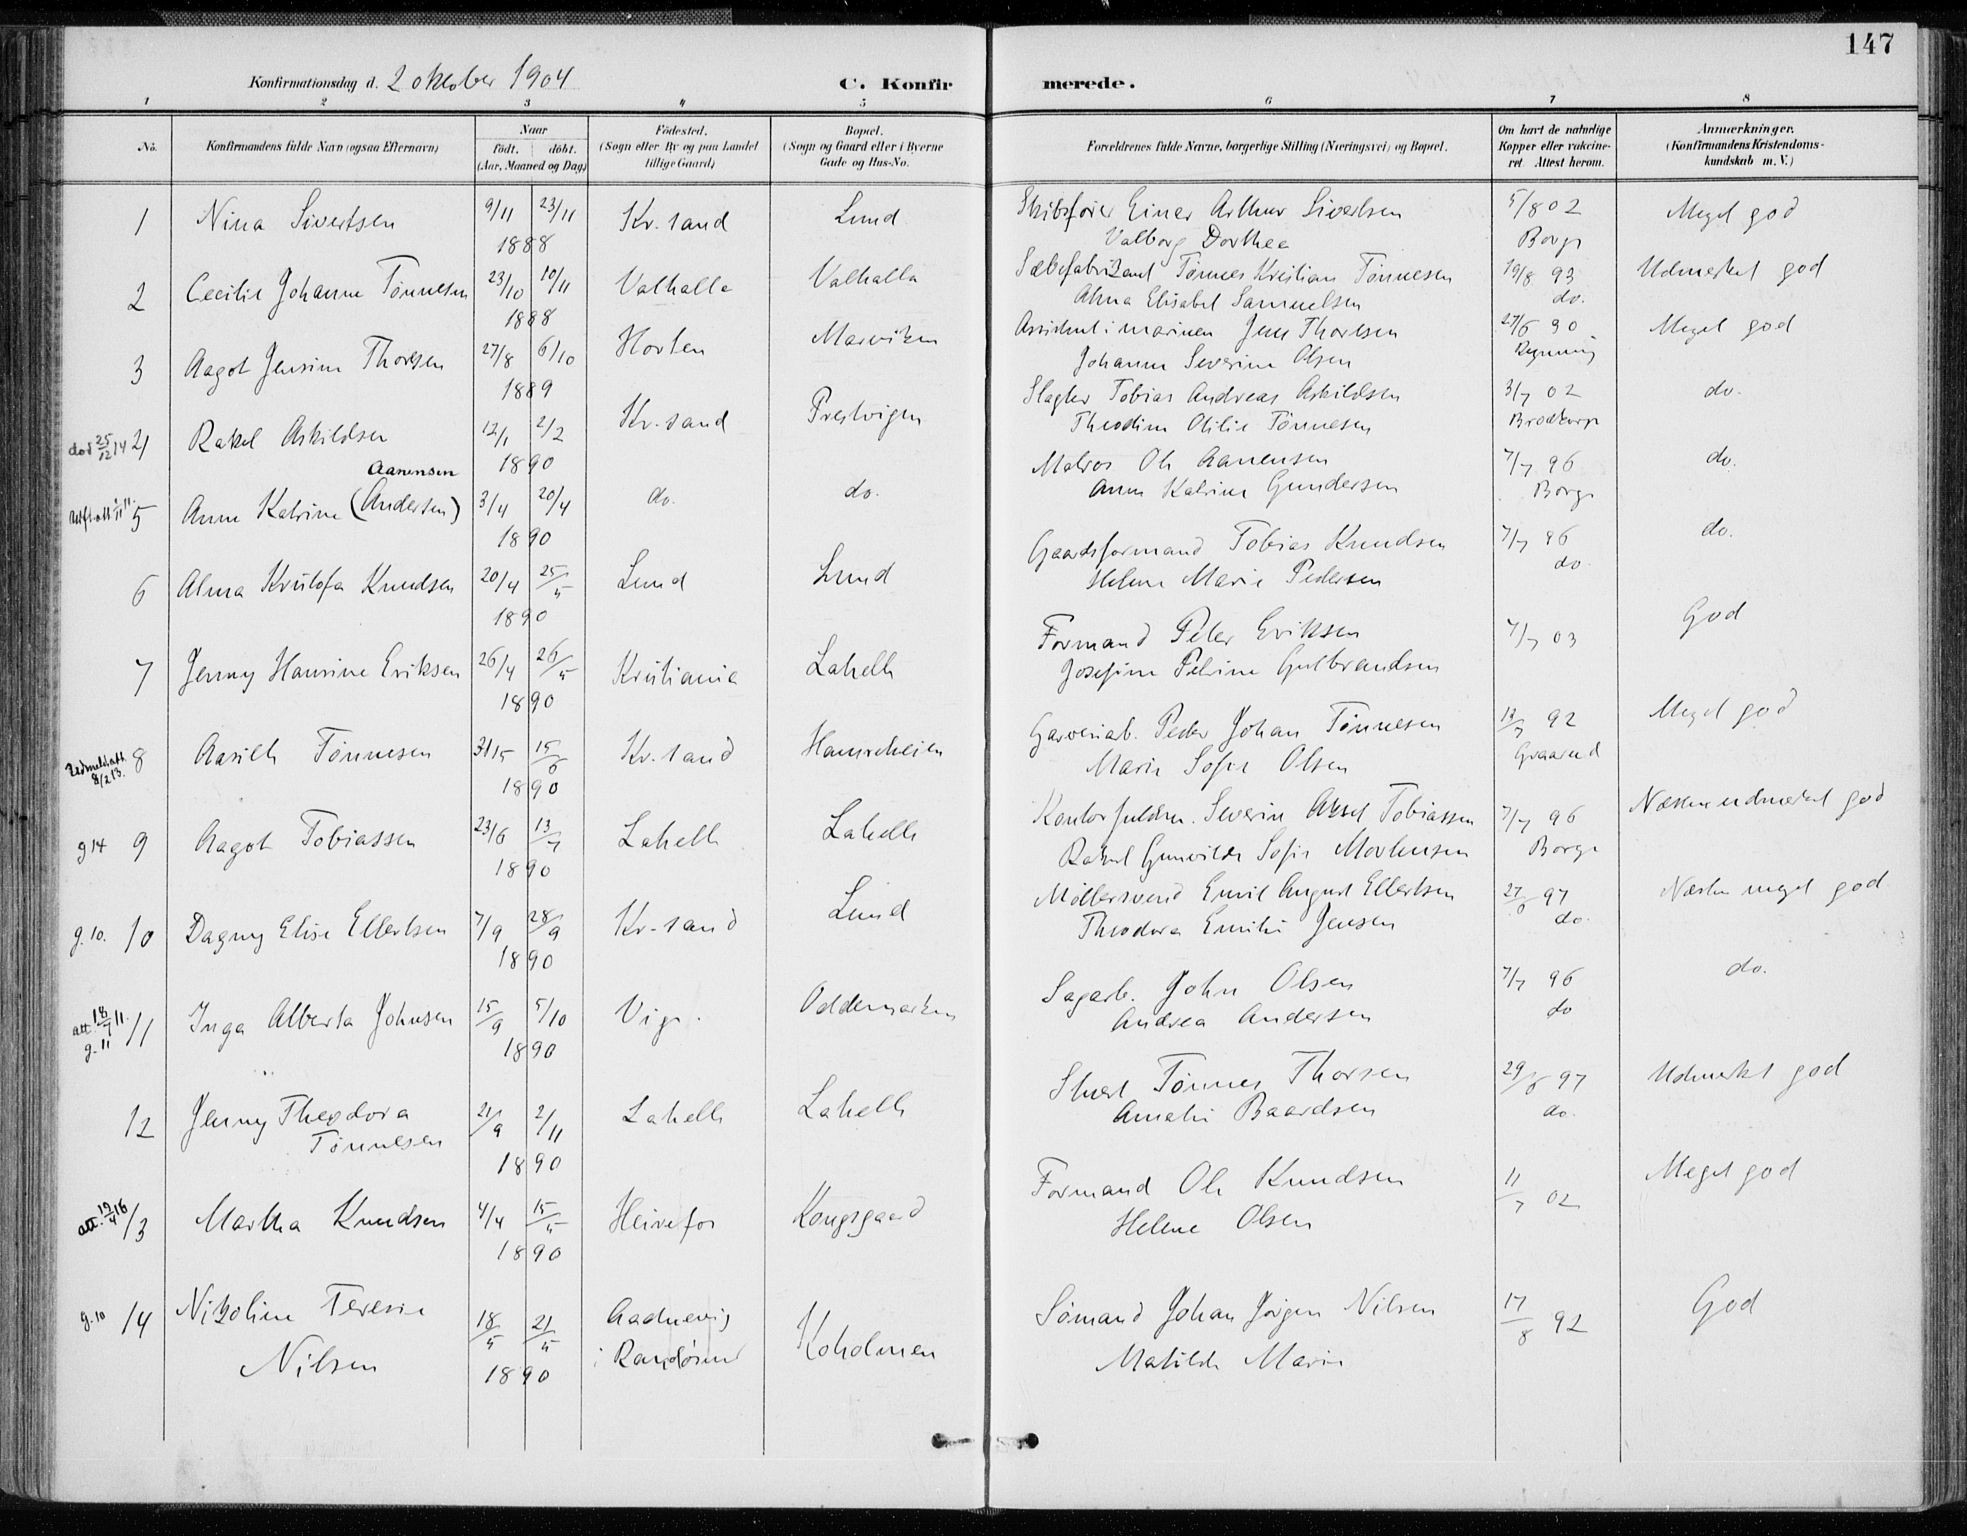 147
Konfirmationsdag d. 2 oktober 1904
C. Konfirmerede.
1 2 3 4 5 6 7 8
No.
Konfirmandens fulde Navn (ogsaa Efternavn)
Naar
født. døbt.
(Aar, Maaned og Dag)
Fødested.
(Sogn eller By og paa Landet tillige Gaard)
Bopæl.
(Sogn og Gaard eller i Byerne Gade og Hus-No.
Forældrenes fulde Navne, borgerlige Stilling (Næringsvei) og Bopæl.
Om havt de naturlige Kopper eller vaccineret. Attest herom.
Anmærkninger.
(Konfirmandens Kristendomskundskab m. V.)
1 Nina Sivertsen 9/11 23/11 Kr.sand Lund Skibsfører Einar Arthur Sivertsen 5/8 02 Meget god
1888 Valborg Dorthea Borge
2 Cecilie Johanne Tønnesen 23/10 10/11 Valhalla Valhalla Sæbefabrikant Tønnes Kristian Tønnesen 19/8 93 Udmerket god
1888 Alma Elisabet Samuelsen do.
3 Aagot Jensine Thoresen 27/8 6/10 Horten Marviken Assistent i marinen Jens Thoresen 27/6 90 Meget god
1889 Johanne Severine Olsen
død 25/12 14 4 Rakel Askildsen 12/1 2/2 Kr.sand Prestvigen Slagter Tobias Andreas Askildsen 3/7 02 do.
1890 Theodine Otilie Tønnesen Brodkorp
5 Anne Katrine (Andersen) Aanensen 3/4 20/4 do. do. Matros Ole Aanensen 7/7 96 do.
1890 Anne Katrine Gundersen Borge
6 Alma Kristofa Knudsen 20/4 25/5 Lund Lund Gaardsformand Tobias Knudsen 7/7 96 do.
1890 Helene Marie Pedersen do
7 Jenny Hansine Eriksen 26/4 26/5 Kristiania Lahelle Formand Peter Eriksen 7/7 03 God
1890 Josefine Petrine Gulbrandsen
8 Aasille Tønnesen 31/5 15/6 Kr.sand Hamreheien Garveriarb. Peder Johan Tønnesen 13/7 92 Meget god
1890 Marie Sofie Olsen Graarud
g 14 9 Aagot Tobiassen 23/6 13/7 Lahelle Lahelle Kontorfuldm. Severin Aksel Tobiassen 7/7 96 Næsten udmerket god
1890 Rakel Gunvilde Sofie Mortensen Borge
g. 10. 10 Dagny Elise Ellertsen 7/9 28/9 Kr.sand Lund Møllersvend Emil August Ellertsen 27/6 97 Næsten meget god
1890 Theodora Emilie Jensen do.
att. 18/7 11. g. 11 11 Inga Alberta Johnsen 15/9 5/10 Vige. Oddemarken Sagarb. John Olsen 7/7 96 do.
1890 Andrea Andersen do
12 Jenny Theodora Tønnesen 21/9 2/11 Lahelle Lahelle Stuert Tønnes Thorsen 29/6 97 Udmerket god
1890 Amalie Baardsen do.
att. 19/4 16 13 Martha Knudsen 4/4 15/5 Heirefos Kongsgaard Formand Ole Knudsen 11/7 02 Meget god
1890 Helene Olsen
g. 10 14 Nikoline Teresie Nilsen 18/5 21/5 Aadnevig i Randøsund Koholmen Sømand Johan Jørgen Nilsen 17/8 92 God
1890 Matilde Marie